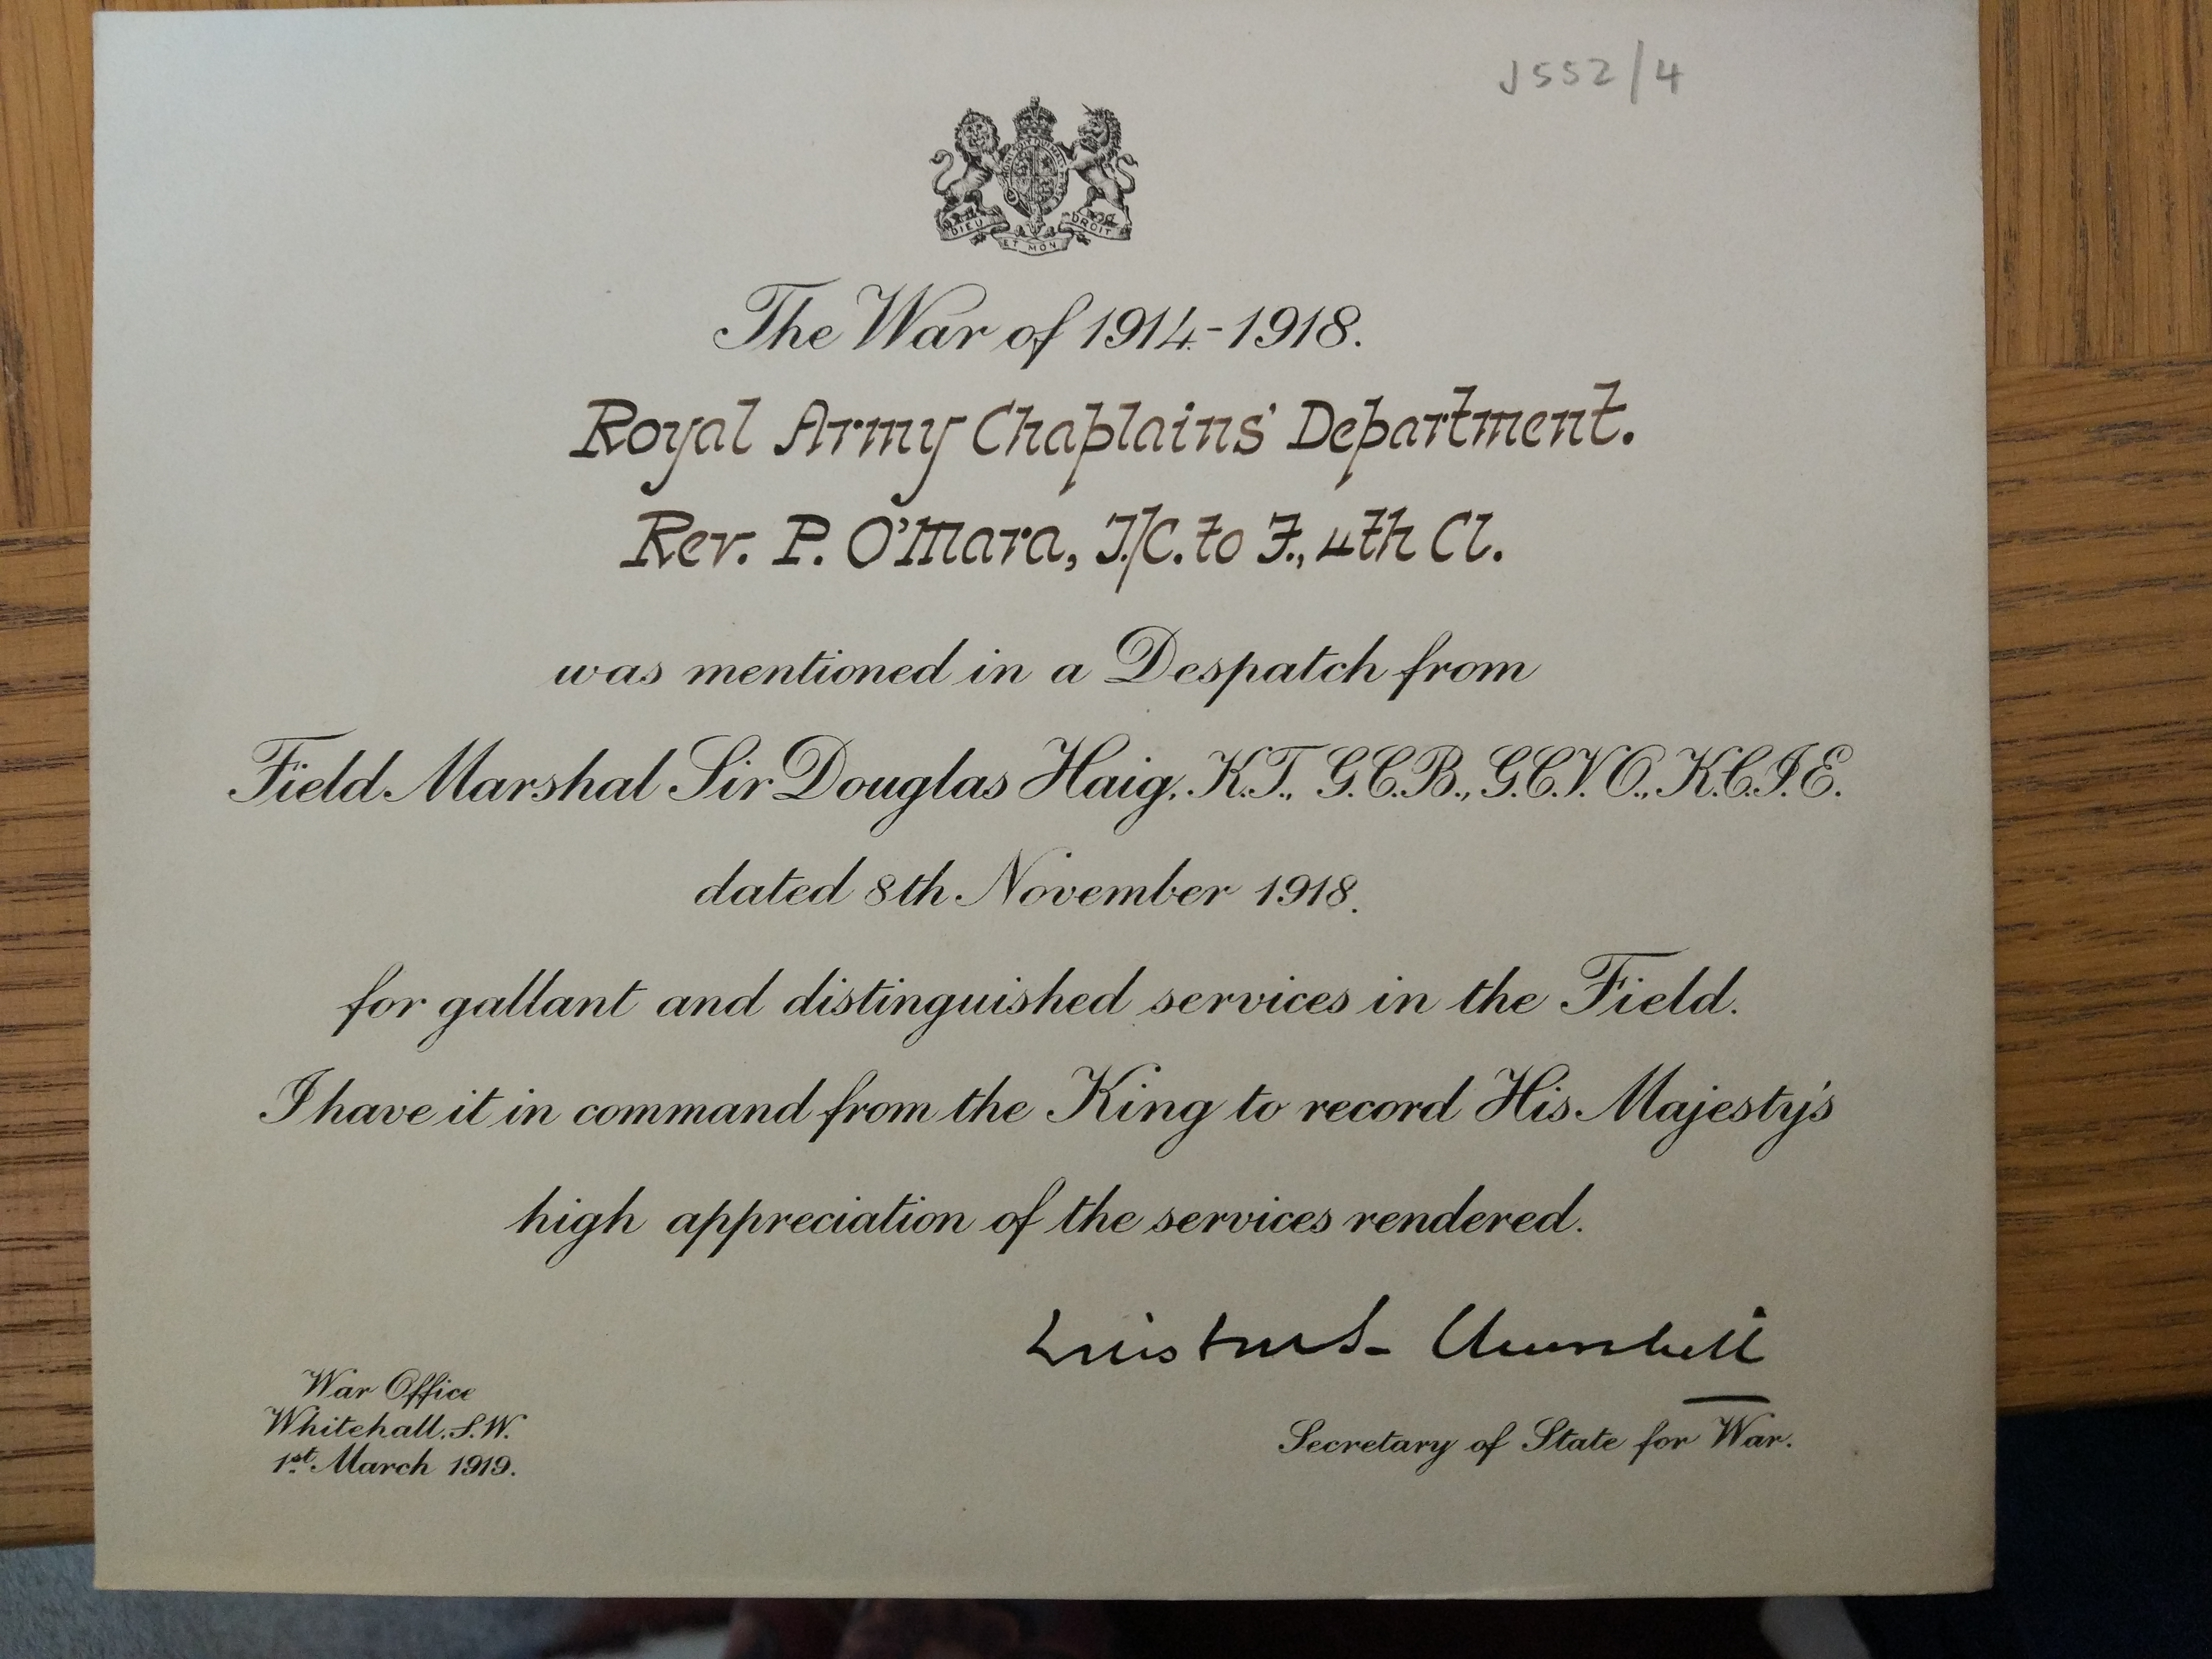 J552/4
DIEU ET MON DROIT
The War of 1914-1918.
Royal Army Chaplains' Department.
Rev. P. O'Mara, T./C. to F., 4th Cl.
was mentioned in a Despatch from
Field Marshal Sir Douglas Haig, K.T., G.C.B., G.C.V.O., K.C.I.E.
dated 8th November 1918.
for gallant and distinguished services in the Field.
I have it in command from the King to record His Majesty's
high appreciation of the services rendered.
Winston S. Churchill
Secretary of State for War.
War Office
Whitehall. S.W.
1st. March 1919.